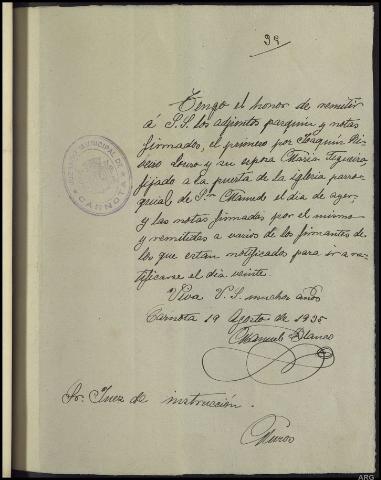 99
Tengo el honor de remitir
á S.S. los adjintos pasquin y notas
firmados, el primero por Joaquin
Louro y su esposa Maria Figueira
fijado a la puerta de la iglesia parro-
quial de Sta Mamed el dia de ayer,
y las notas firmadas por el mismo
y remitidas a varios de los firmantes de
los que estan notificados para ir a ra-
tificarse el dia veinte.
Viva V.S. muchos años
Carnota 19 Agosto de 1935
Manuel Blanco
Sr. Juez de instrucción.
Muros
JUZGADO MUNICIPAL DE CARNOTA
ARG